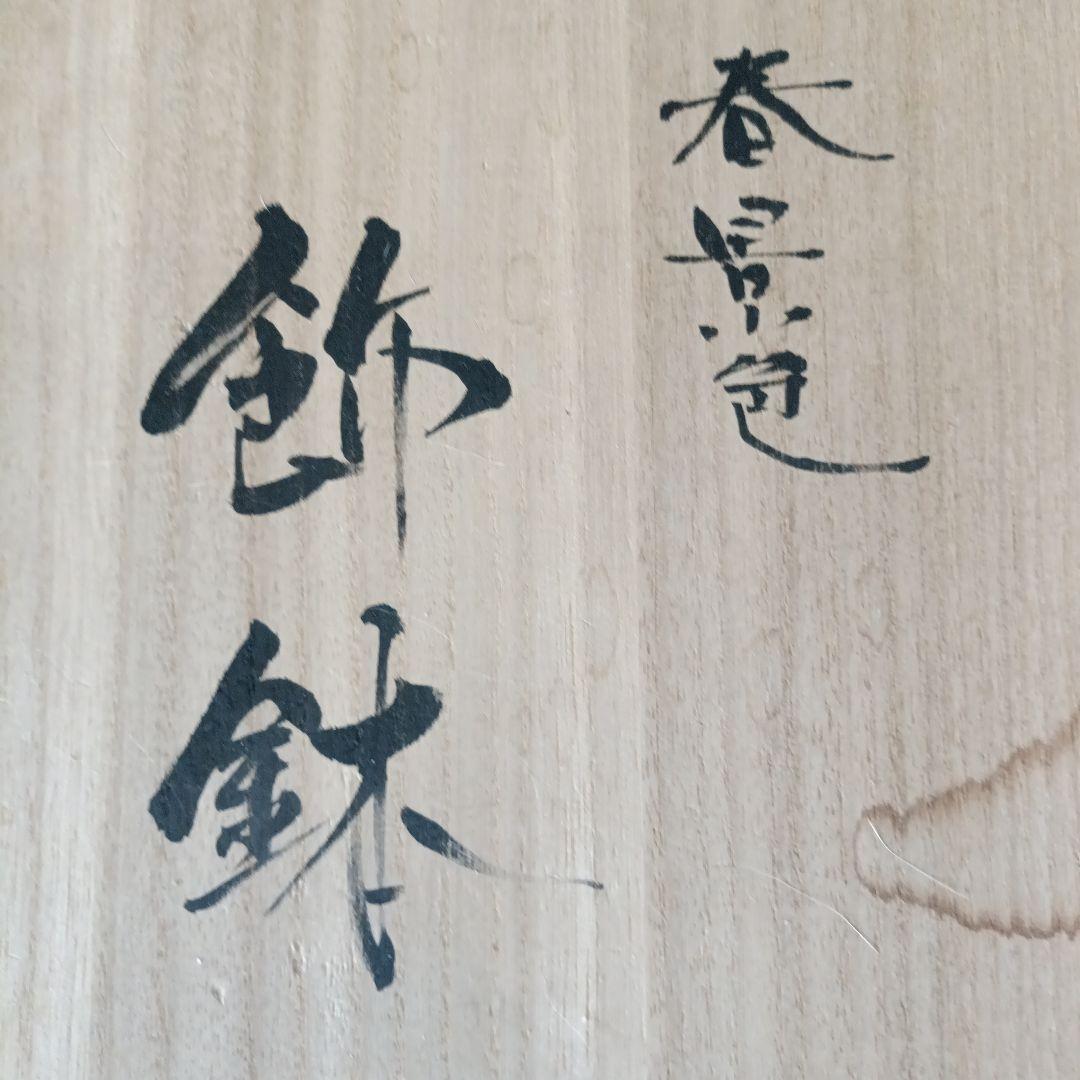 春景色
飾鉢